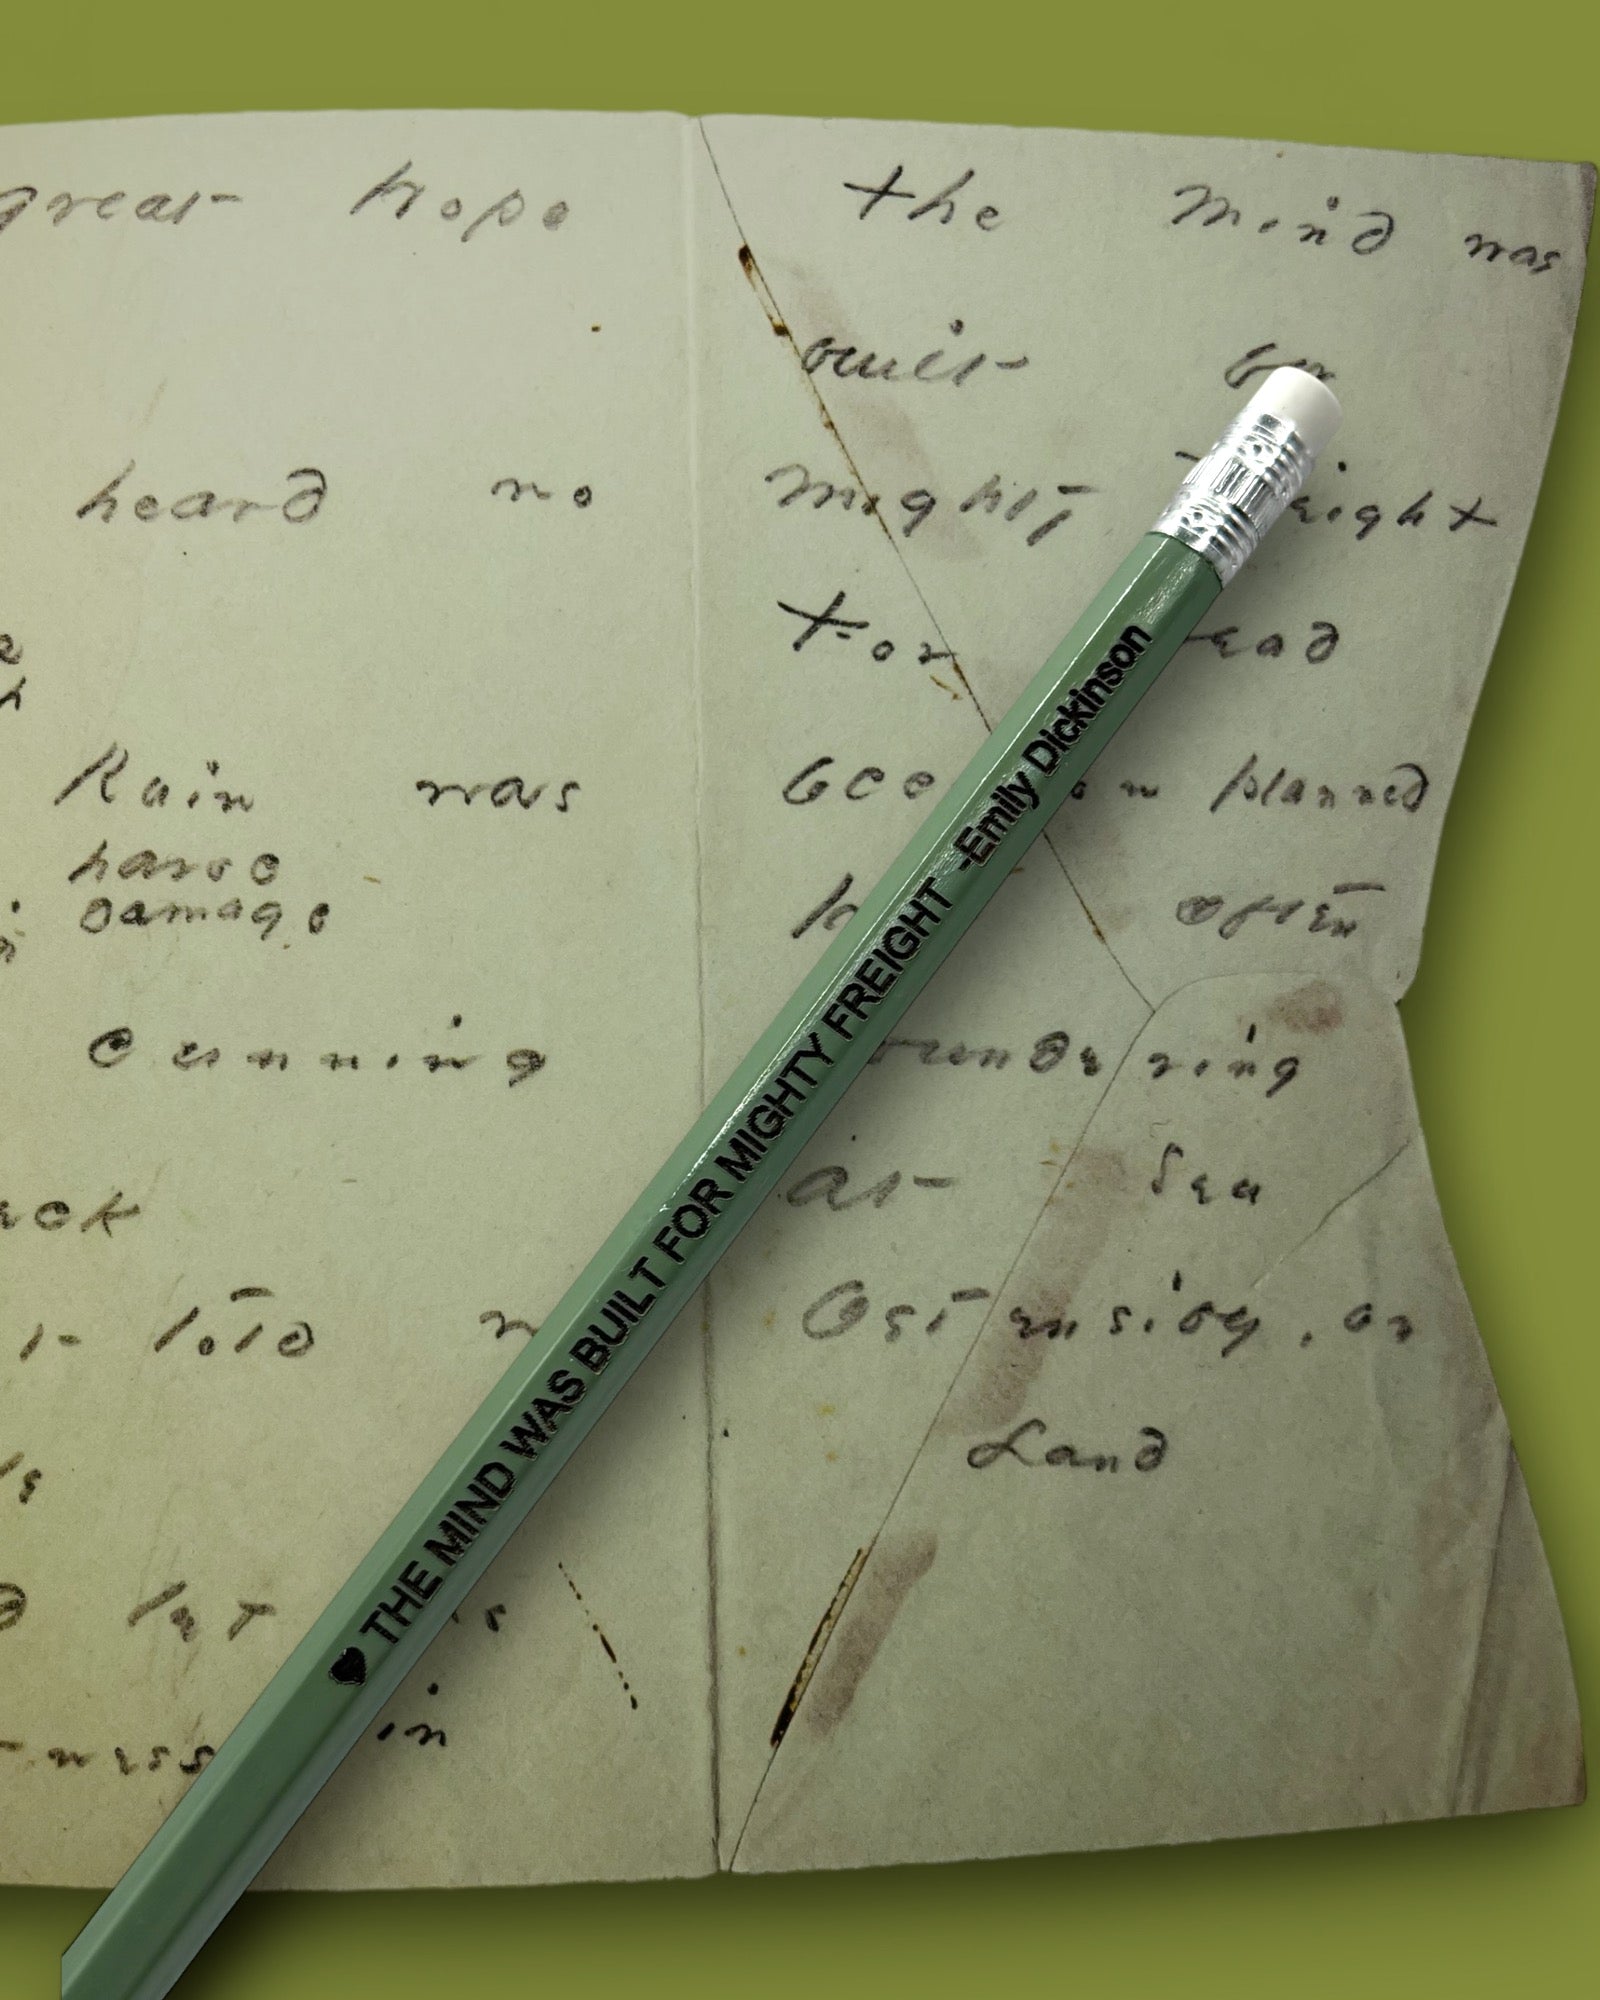 great hope
heard no
Rain was
havoc
damage
cunning
told
in
the Mind was
built for
mighty
For
planned
often
at Sea
Ostensibly, on
Land
♥ THE MIND WAS BUILT FOR MIGHTY FREIGHT -Emily Dickinson